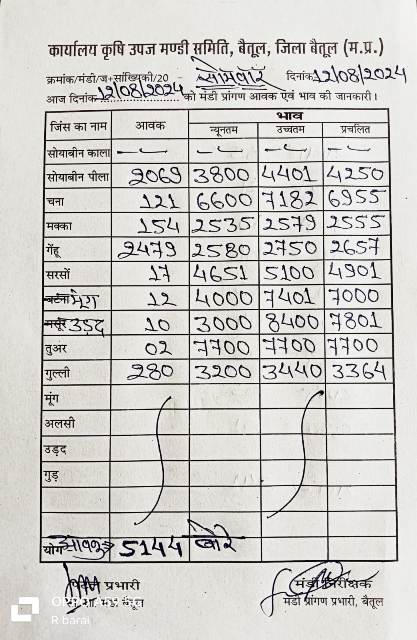 कार्यालय कृषि उपज मण्डी समिति, बैतूल, जिला बैतूल (म.प्र.)
क्रमांक/मंडी/ज+सांख्यिकी/20 - सोमवार दिनांक 12/08/2024
आज दिनांक 12/08/2024 को मंडी प्रांगण आवक एवं भाव की जानकारी।
जिंस का नाम आवक भाव
न्यूनतम उच्चतम प्रचलित
सोयाबीन काला — — — —
सोयाबीन पीला 2069 3800 4401 4250
चना 121 6600 7182 6955
मक्का 154 2535 2579 2555
गेंहू 2479 2580 2750 2657
सरसों 17 4651 5100 4901
बटना मूंग 12 4000 7401 7000
मसूर उड़द 10 3000 8400 7801
तुअर 02 7700 7700 7700
गुल्ली 280 3200 3440 3364
मूंग
अलसी
उड़द
गुड़
योग आवक 5144 बोरे
प्रभारी मंडी निरीक्षक
बैतूल मंडी प्रांगण प्रभारी, बैतूल
R barai